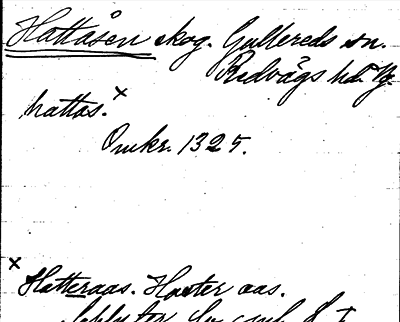 Hattåsen skog. Gullereds sn.
Redvägs hd Vg.
hattås.x
Omkr. 1325.
x
Hatteraas. Hatter aas.